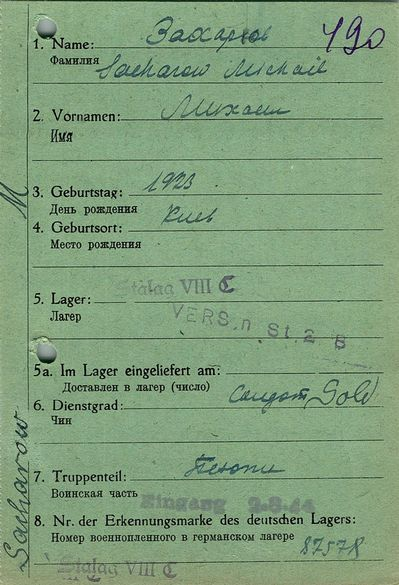 1. Name: Захаров 490
Фамилия
Sacharow Michail
2. Vornamen: Михаил
Имя
3. Geburtstag: 1923
День рождения
4. Geburtsort: Киев
Место рождения
Stalag VIII C
5. Lager:
Лагер
VERS. n St. 2 B
5a. Im Lager eingeliefert am:
Доставлен в лагер (число)
6. Dienstgrad: солдат Sold
Чин
7. Truppenteil: Пехота
Воинская часть
Eingang 9.8.44
8. Nr. der Erkennungsmarke des deutschen Lagers:
Номер военнопленного в германском лагере
87578
Stalag VIII C
M
Sacharow